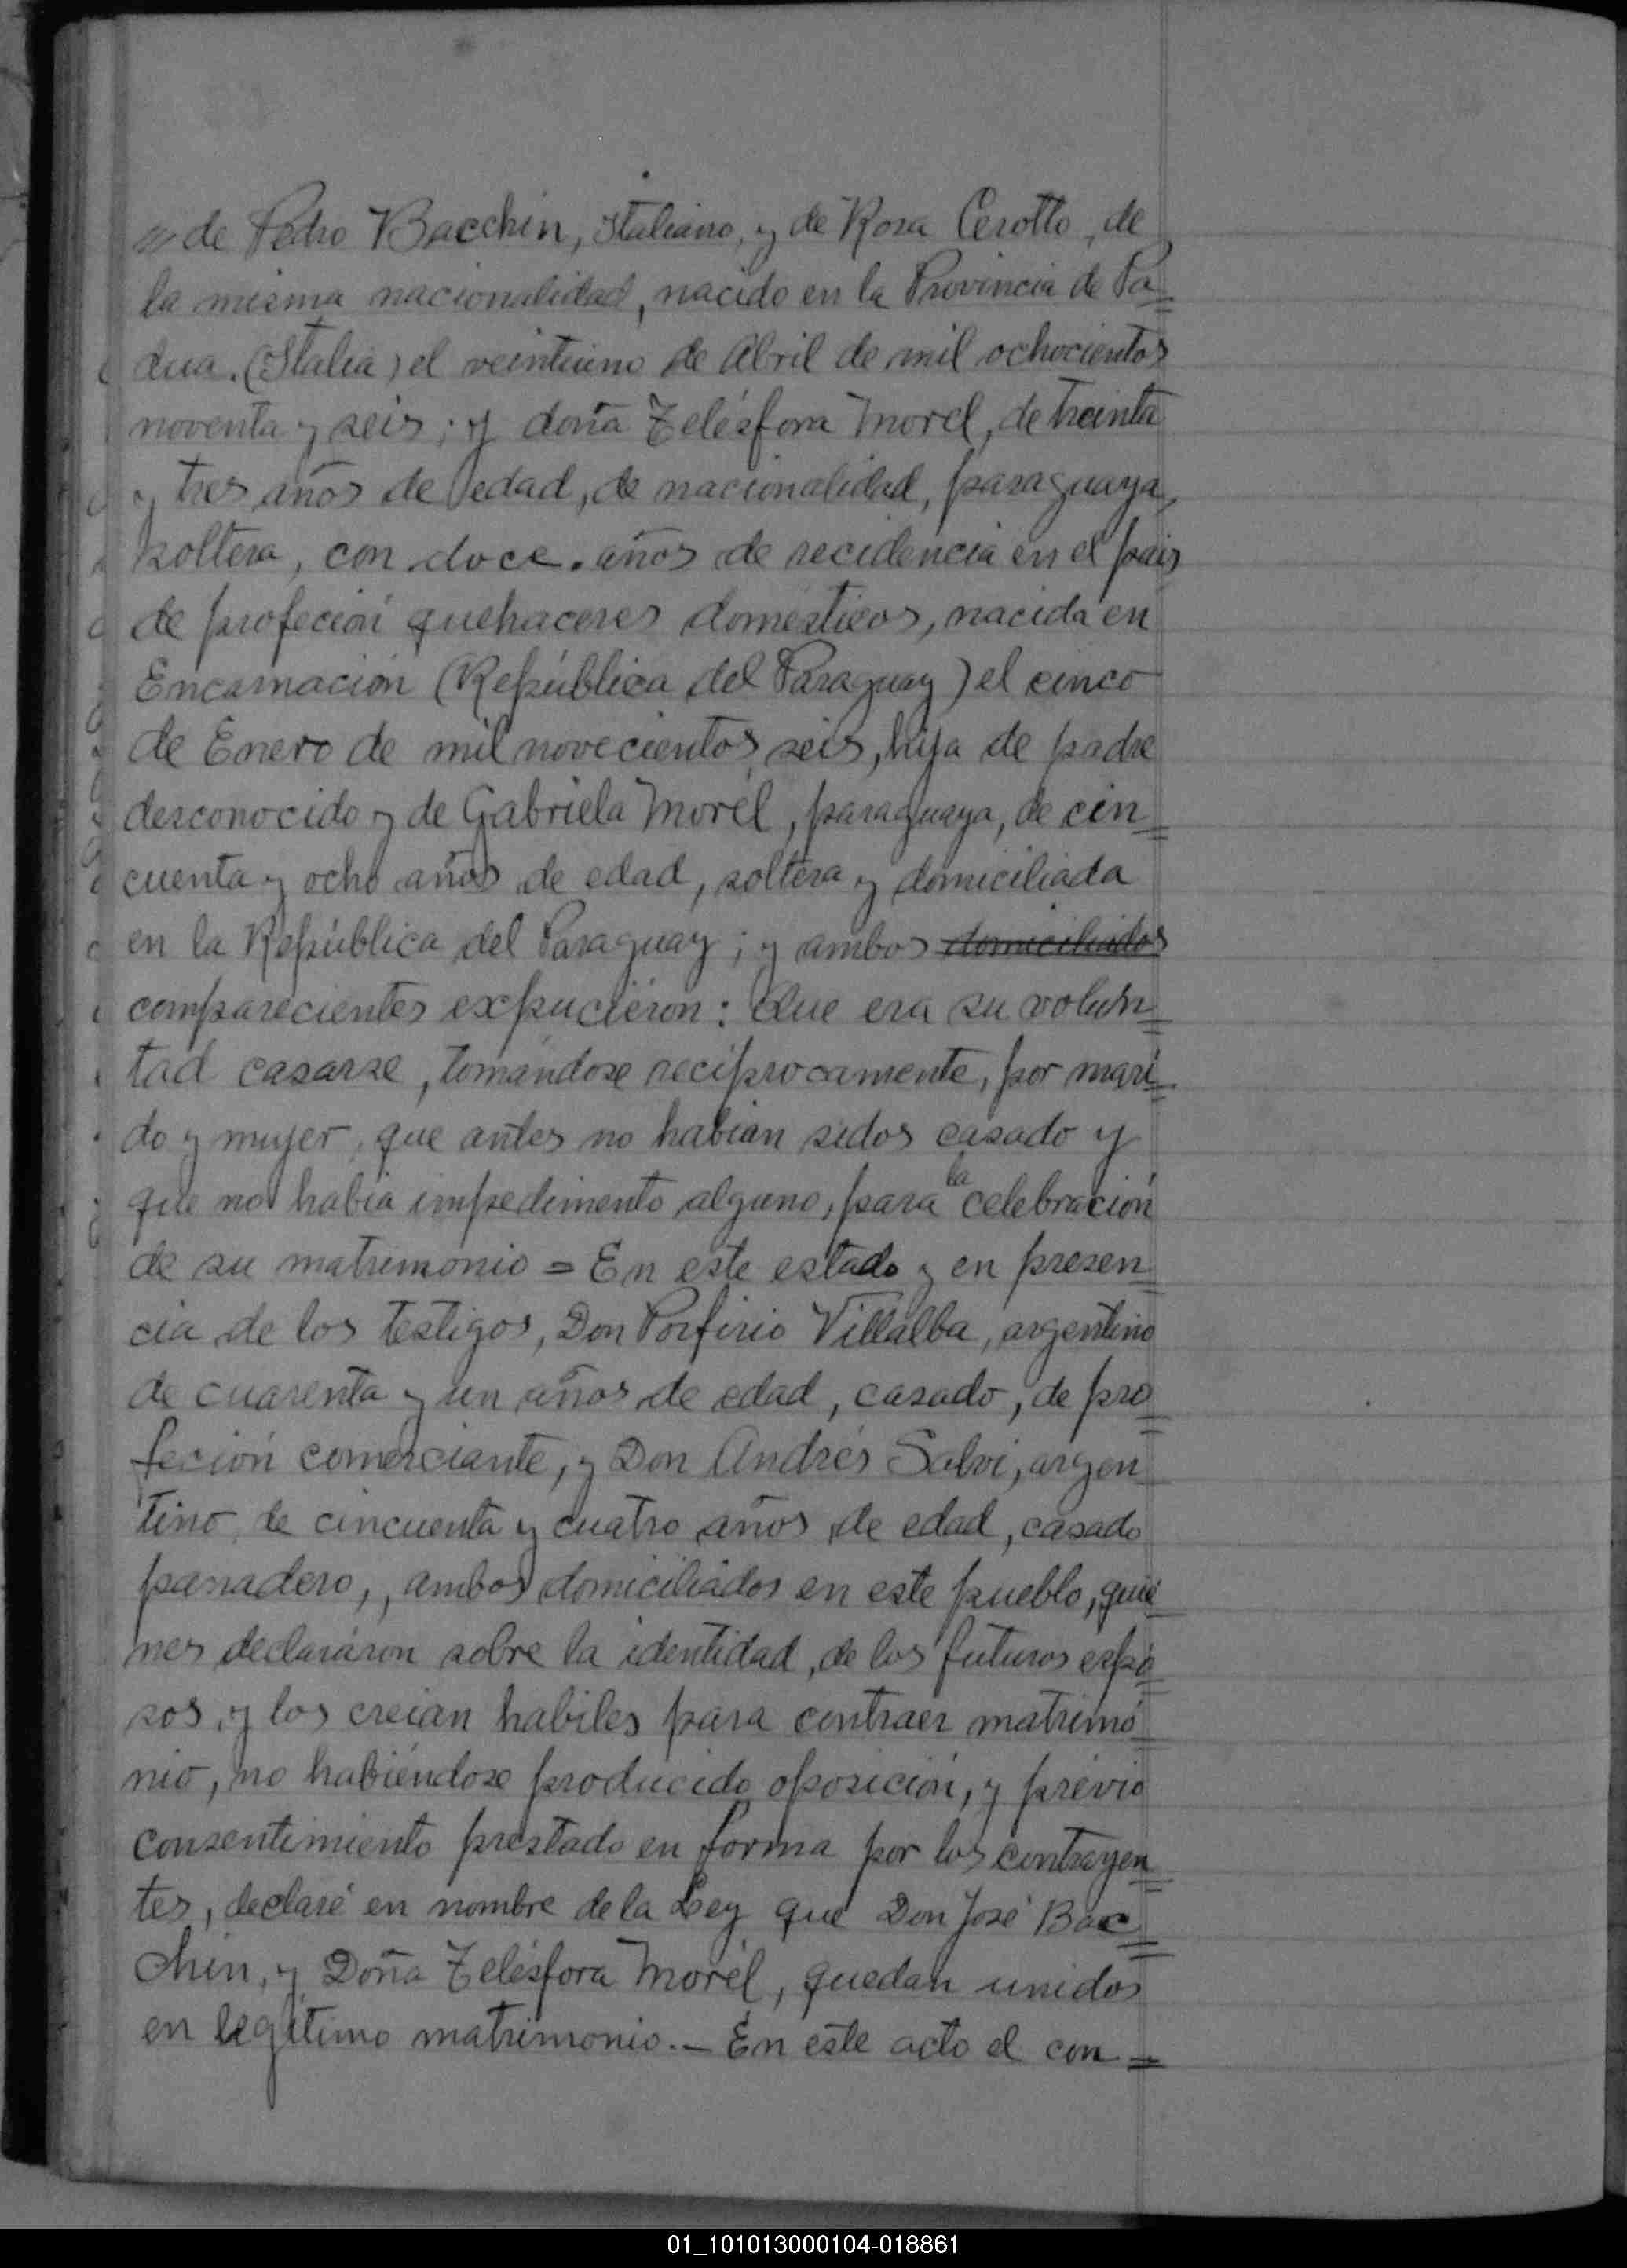 // de Pedro Bacchin, Italiano, y de Rosa Cerotto, de
la misma nacionalidad, nacido en la Provincia de Pa=
dua. (Italia) el veintiuno de Abril de mil ochocientos
noventa y seis; y doña Telésfora Morel, de treinta
y tres años de edad, de nacionalidad, paraguaya,
soltera, con doce. años de recidencia en el pais
de profeción quehaceres domésticos, nacida en
Encarnación (República del Paraguay) el cinco
de Enero de mil novecientos seis, hija de padre
desconocido y de Gabriela Morél, paraguaya, de cin=
cuenta y ocho años de edad, soltera y domiciliada
en la República del Paraguay; y ambos domiciliados
comparecientes expuciéron: Que era su volun=
tad casarse, tomándose reciprocamente, por mari=
do y mujer, que antes no habian sidos casado y
que no habia impedimento alguno, para la celebración
de su matrimonio = En este estado y en presen=
cia de los testigos, Don Porfirio Villalba, argentino
de cuarenta y un años de edad, casado, de pro=
feción comerciante, y Don Andrés Salvi, argen=
tino, de cincuenta y cuatro años de edad, casado
panadero,, ambos domiciliados en este pueblo, quie=
nes declaráron sobre la identidad, de los futuros espo=
sos, y los creian habiles para contraer matrimo=
nio, no habiéndose producido oposición, y prévio
consentimiento prestado en forma por los contrayen=
tes, declaré en nombre de la Ley que Don José Bac=
chin, y Doña Telésfora Morél, quedan unidos
en legítimo matrimonio.- En este acto el con=
01_101013000104-018861